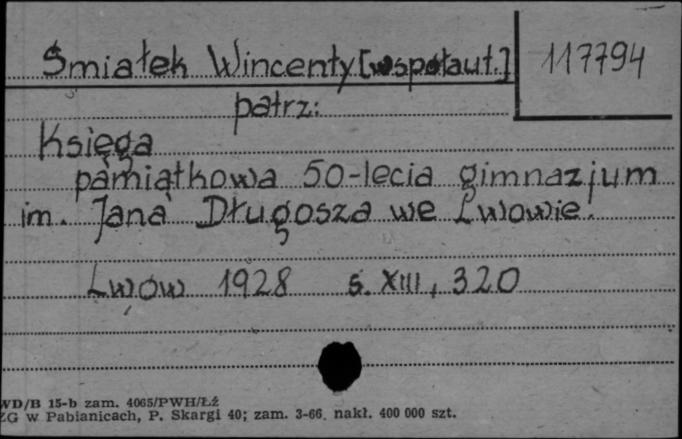 Śmiałek Wincenty [współaut.]
117794
patrz:
Księga
pamiątkowa 50-lecia gimnazjum
im. Jana Długosza we Lwowie.
Lwów 1928 s. XIII, 320
WD/B 15-b zam. 4065/PWH/ŁŻ
ZG w Pabianicach, P. Skargi 40; zam. 3-66. nakł. 400 000 szt.